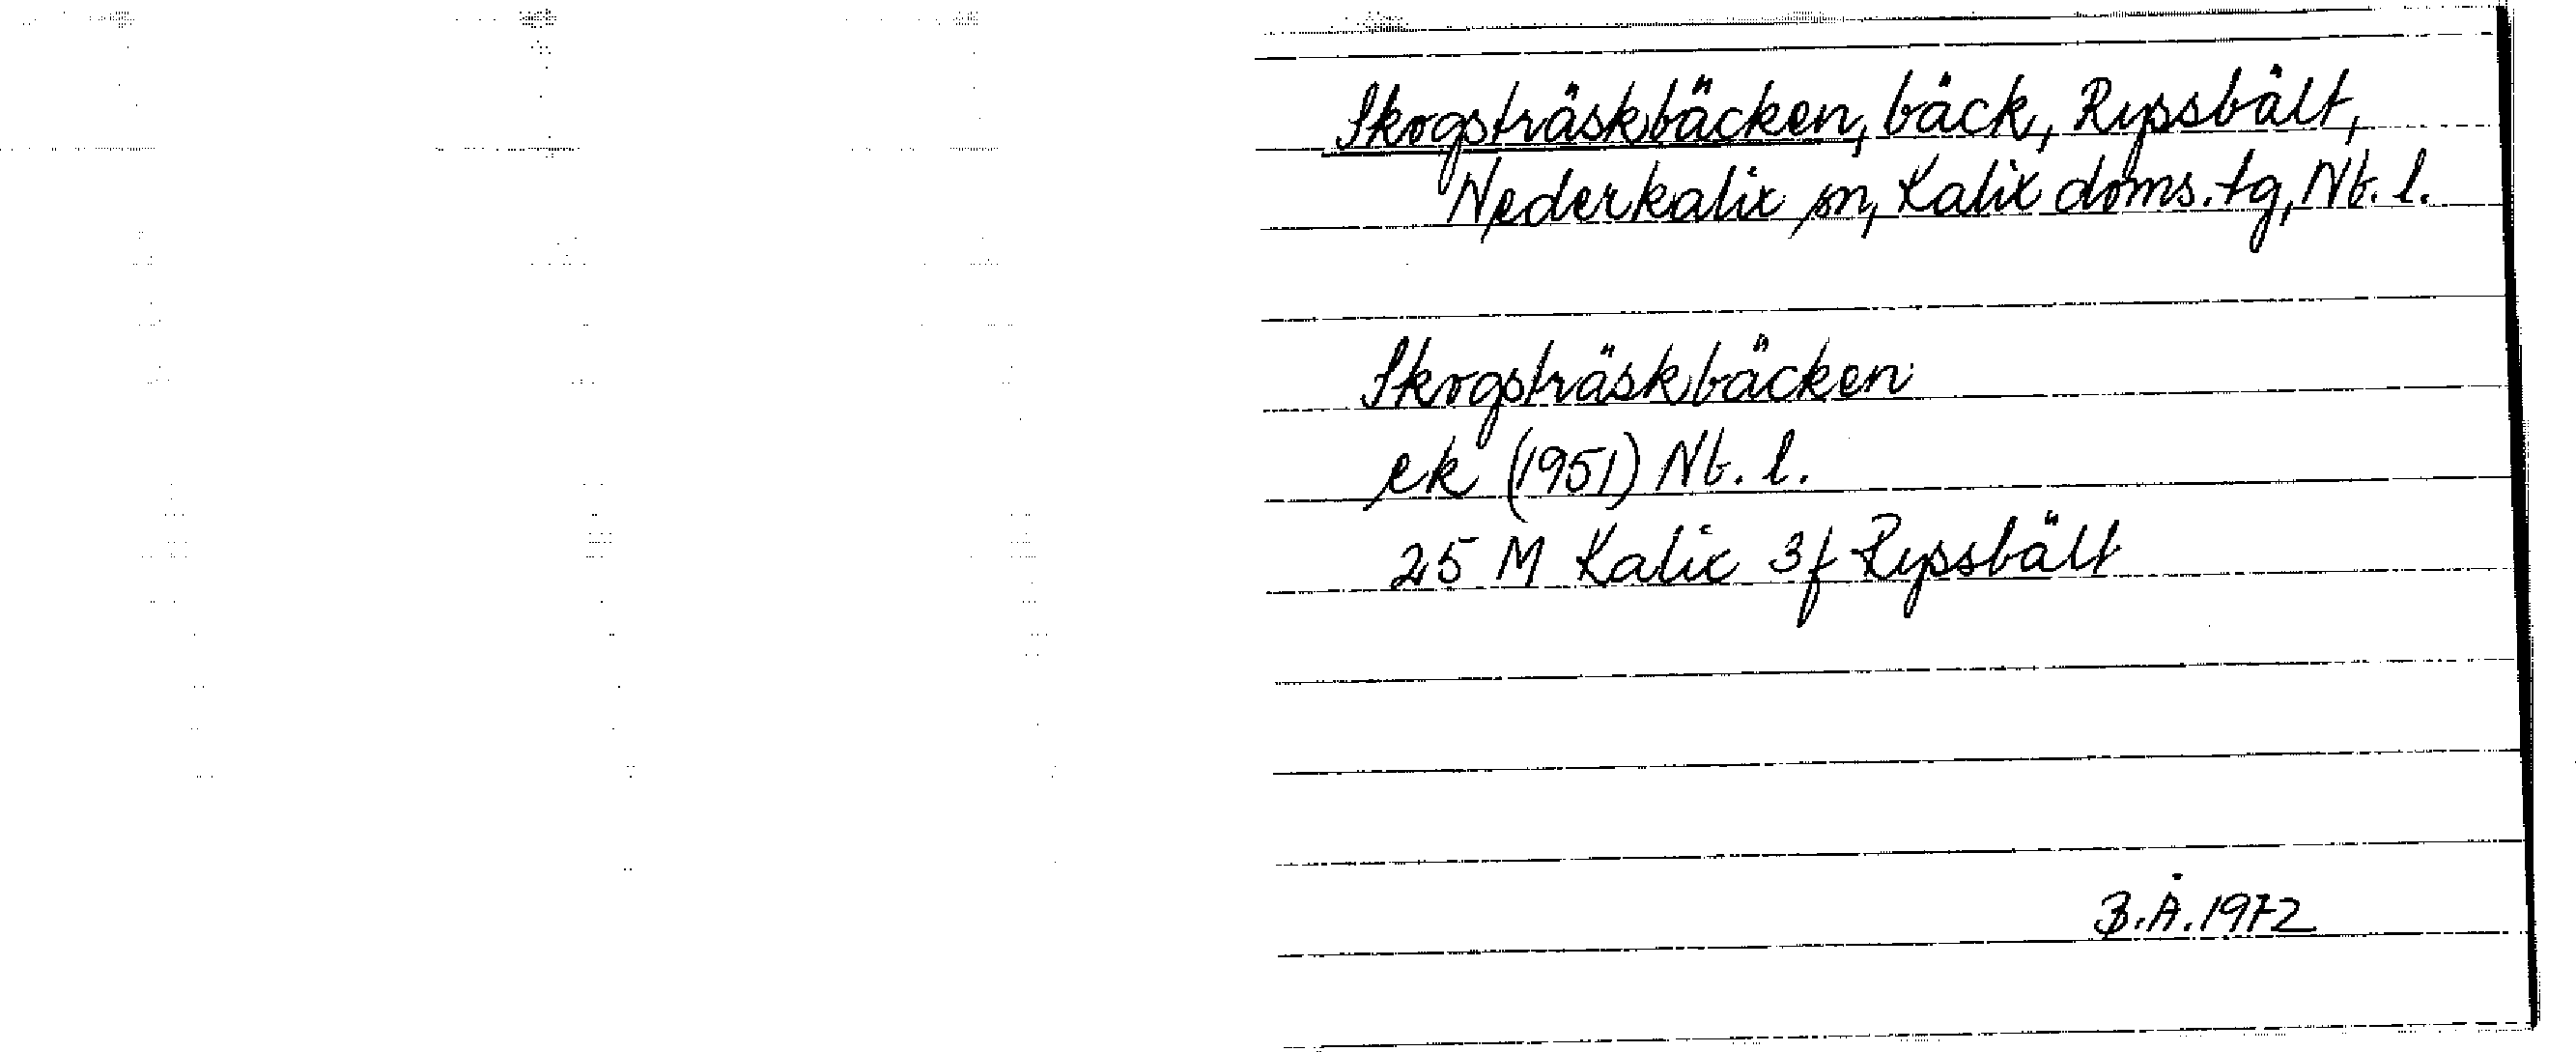 Skogsträskbäcken, bäck, Ryssbält,
Nederkalix sn, Kalix doms.tg, Nb. l.
Skogsträskbäcken
ek (1951) Nb. l.
25 M Kalix 3f Ryssbält
B.Å. 1972